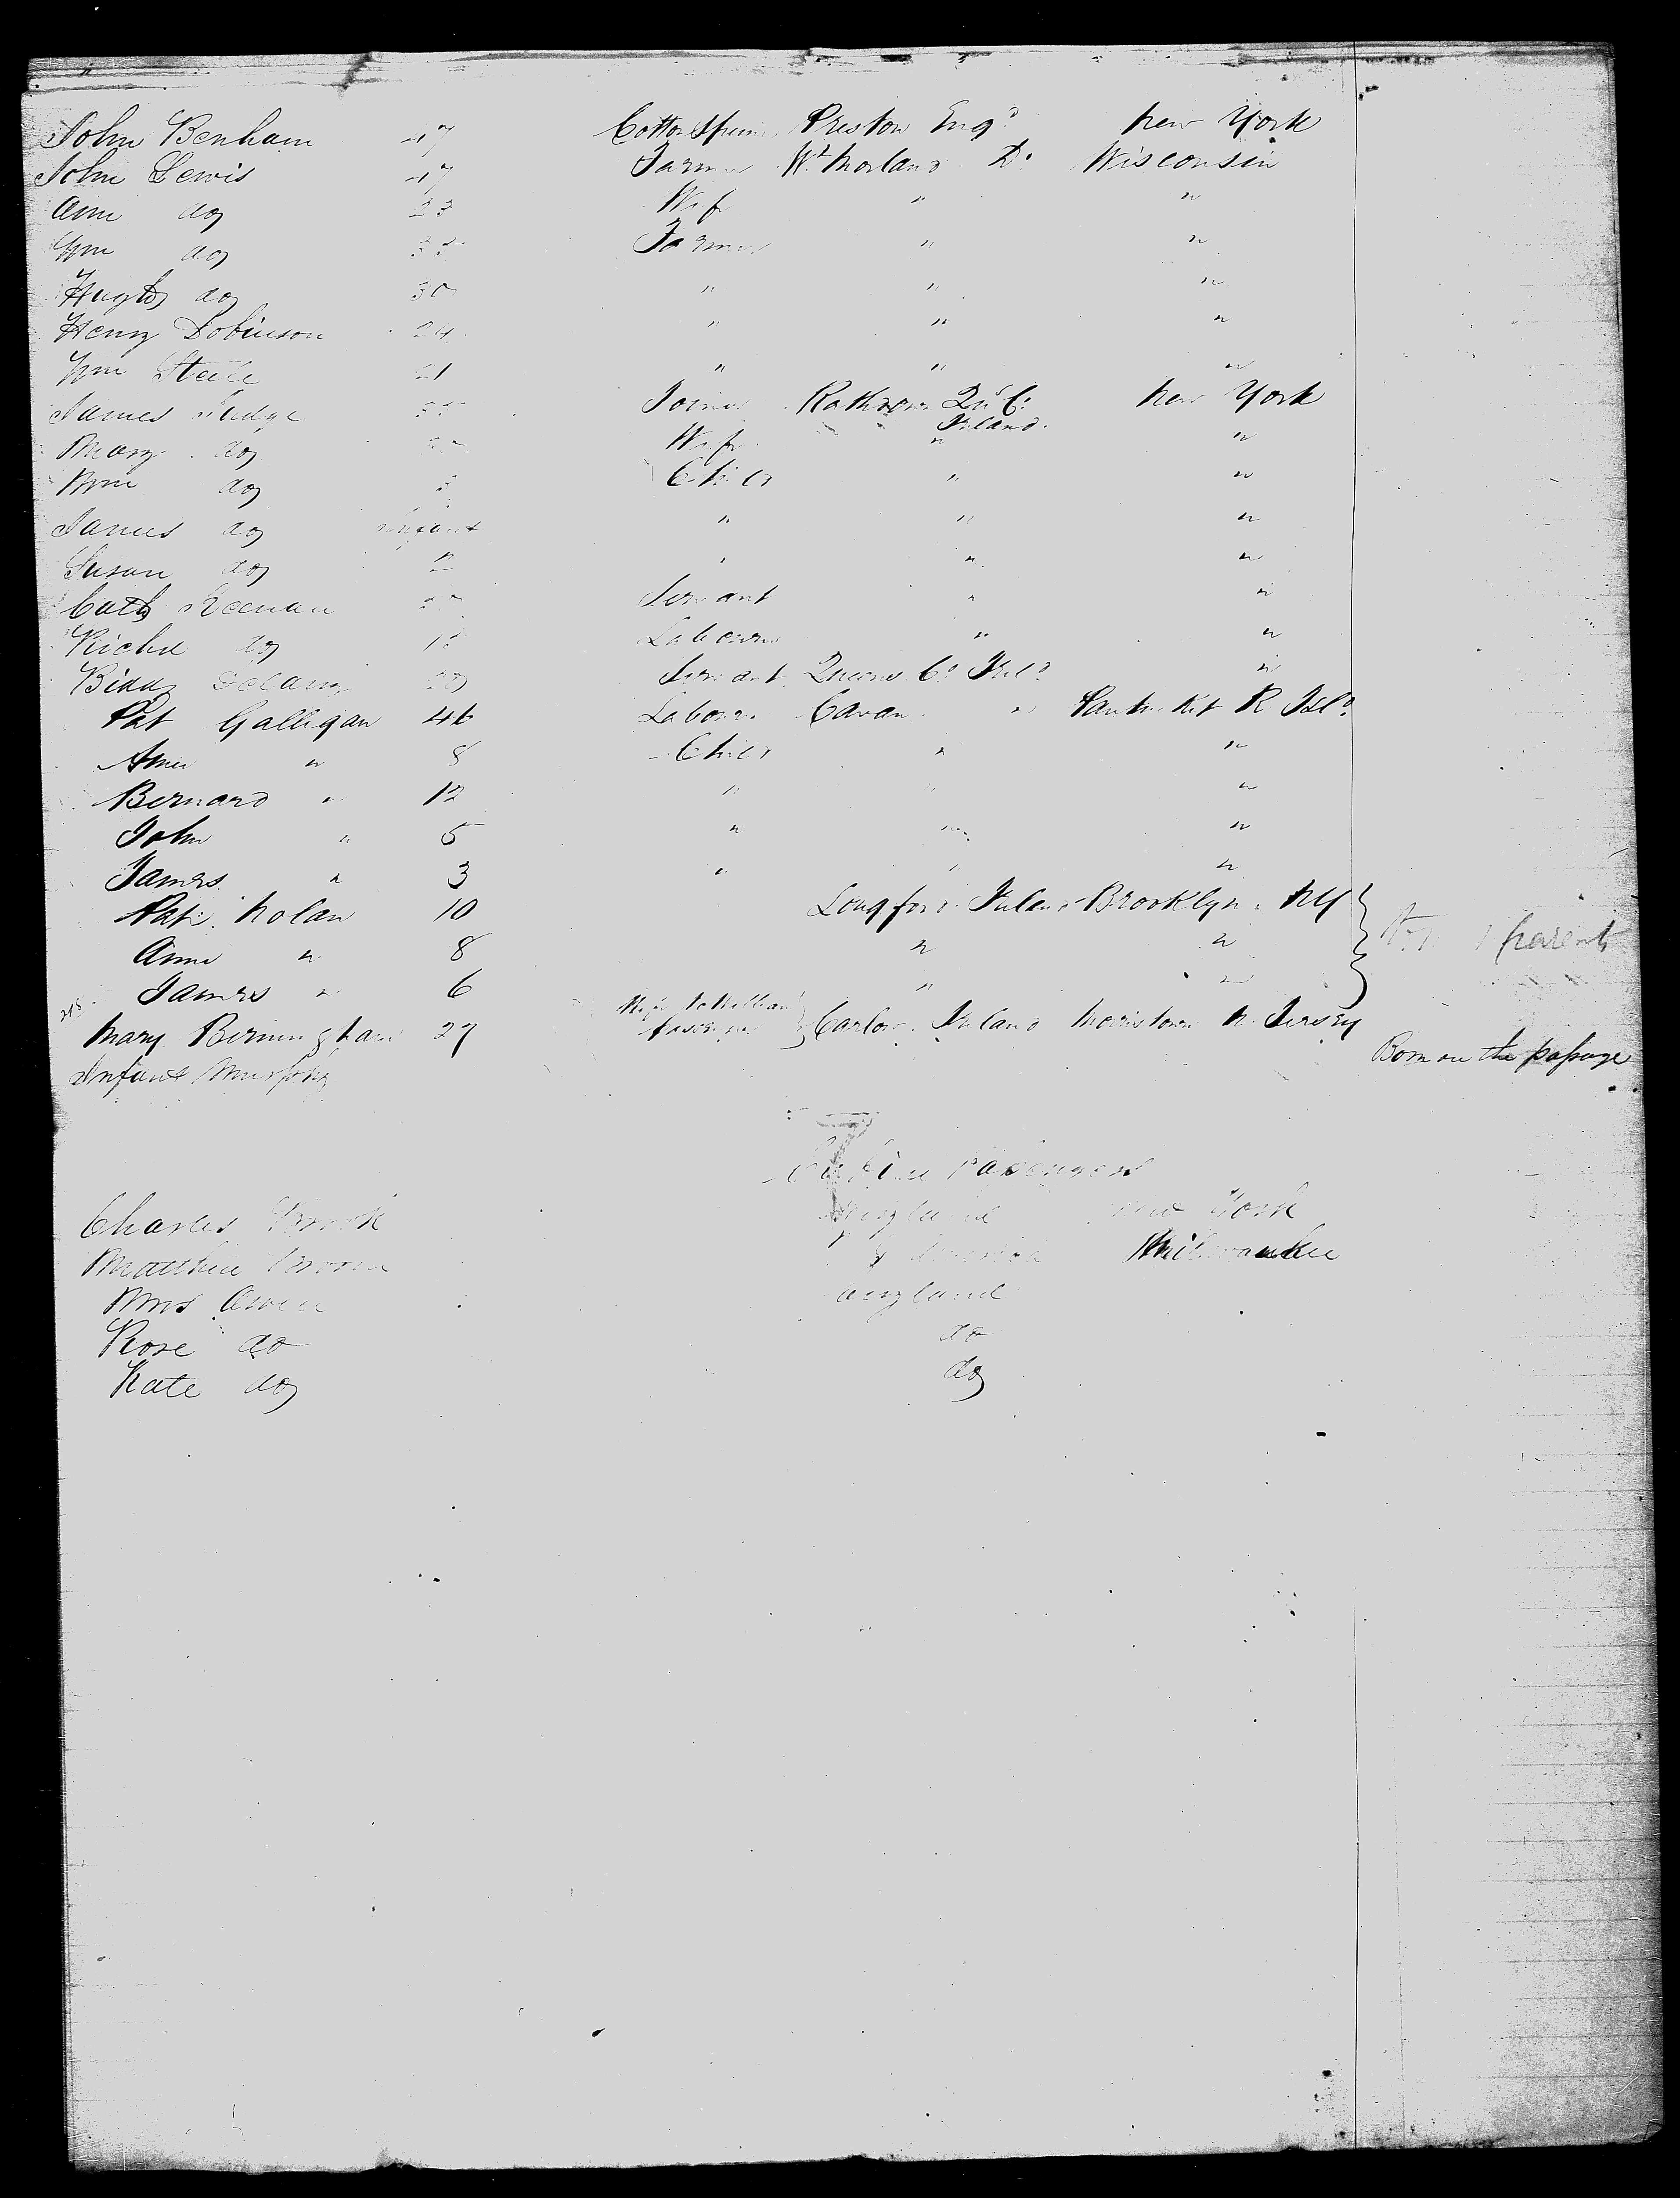 John Benham 47 Cotton Spinn Preston Engd New York
John Lewis 47 Farmer Wt morland Do Wisconsin
Ann do 23 Wife " "
Wm do Farmer " "
Hugh do 30 " " "
Henry Dobinson 24 " " "
Wm Steele 21 " " "
James Judge Joiner Qns Co: New York
Ireland
Mary do Wife " "
Wm do Child " "
James do Infant " " "
Susan do 2 " " "
Cath Keenan Servant " "
Richd do Labourer " "
Biddy Delany 20 Servant Queens Co Ireld "
Pat Galligan 46 Labourer Cavan " R Isld
Ann " 8 Child " "
Bernard " 12 " " "
John " 5 " " "
James " 3 " " "
Patk Nolan 10 Longford Ireland Brooklyn NY
Anne " 8 " " parents
James " 6 " "
Mary Birmingham 27 Wife to William passenger Carlow Ireland Morristown N. Jersey
Infant Murphy Born on the passage
Cabin Passengers
Charles Brook England New York
Matthew Milwaukee
Mrs Owen England
Rose do do
Kate do do